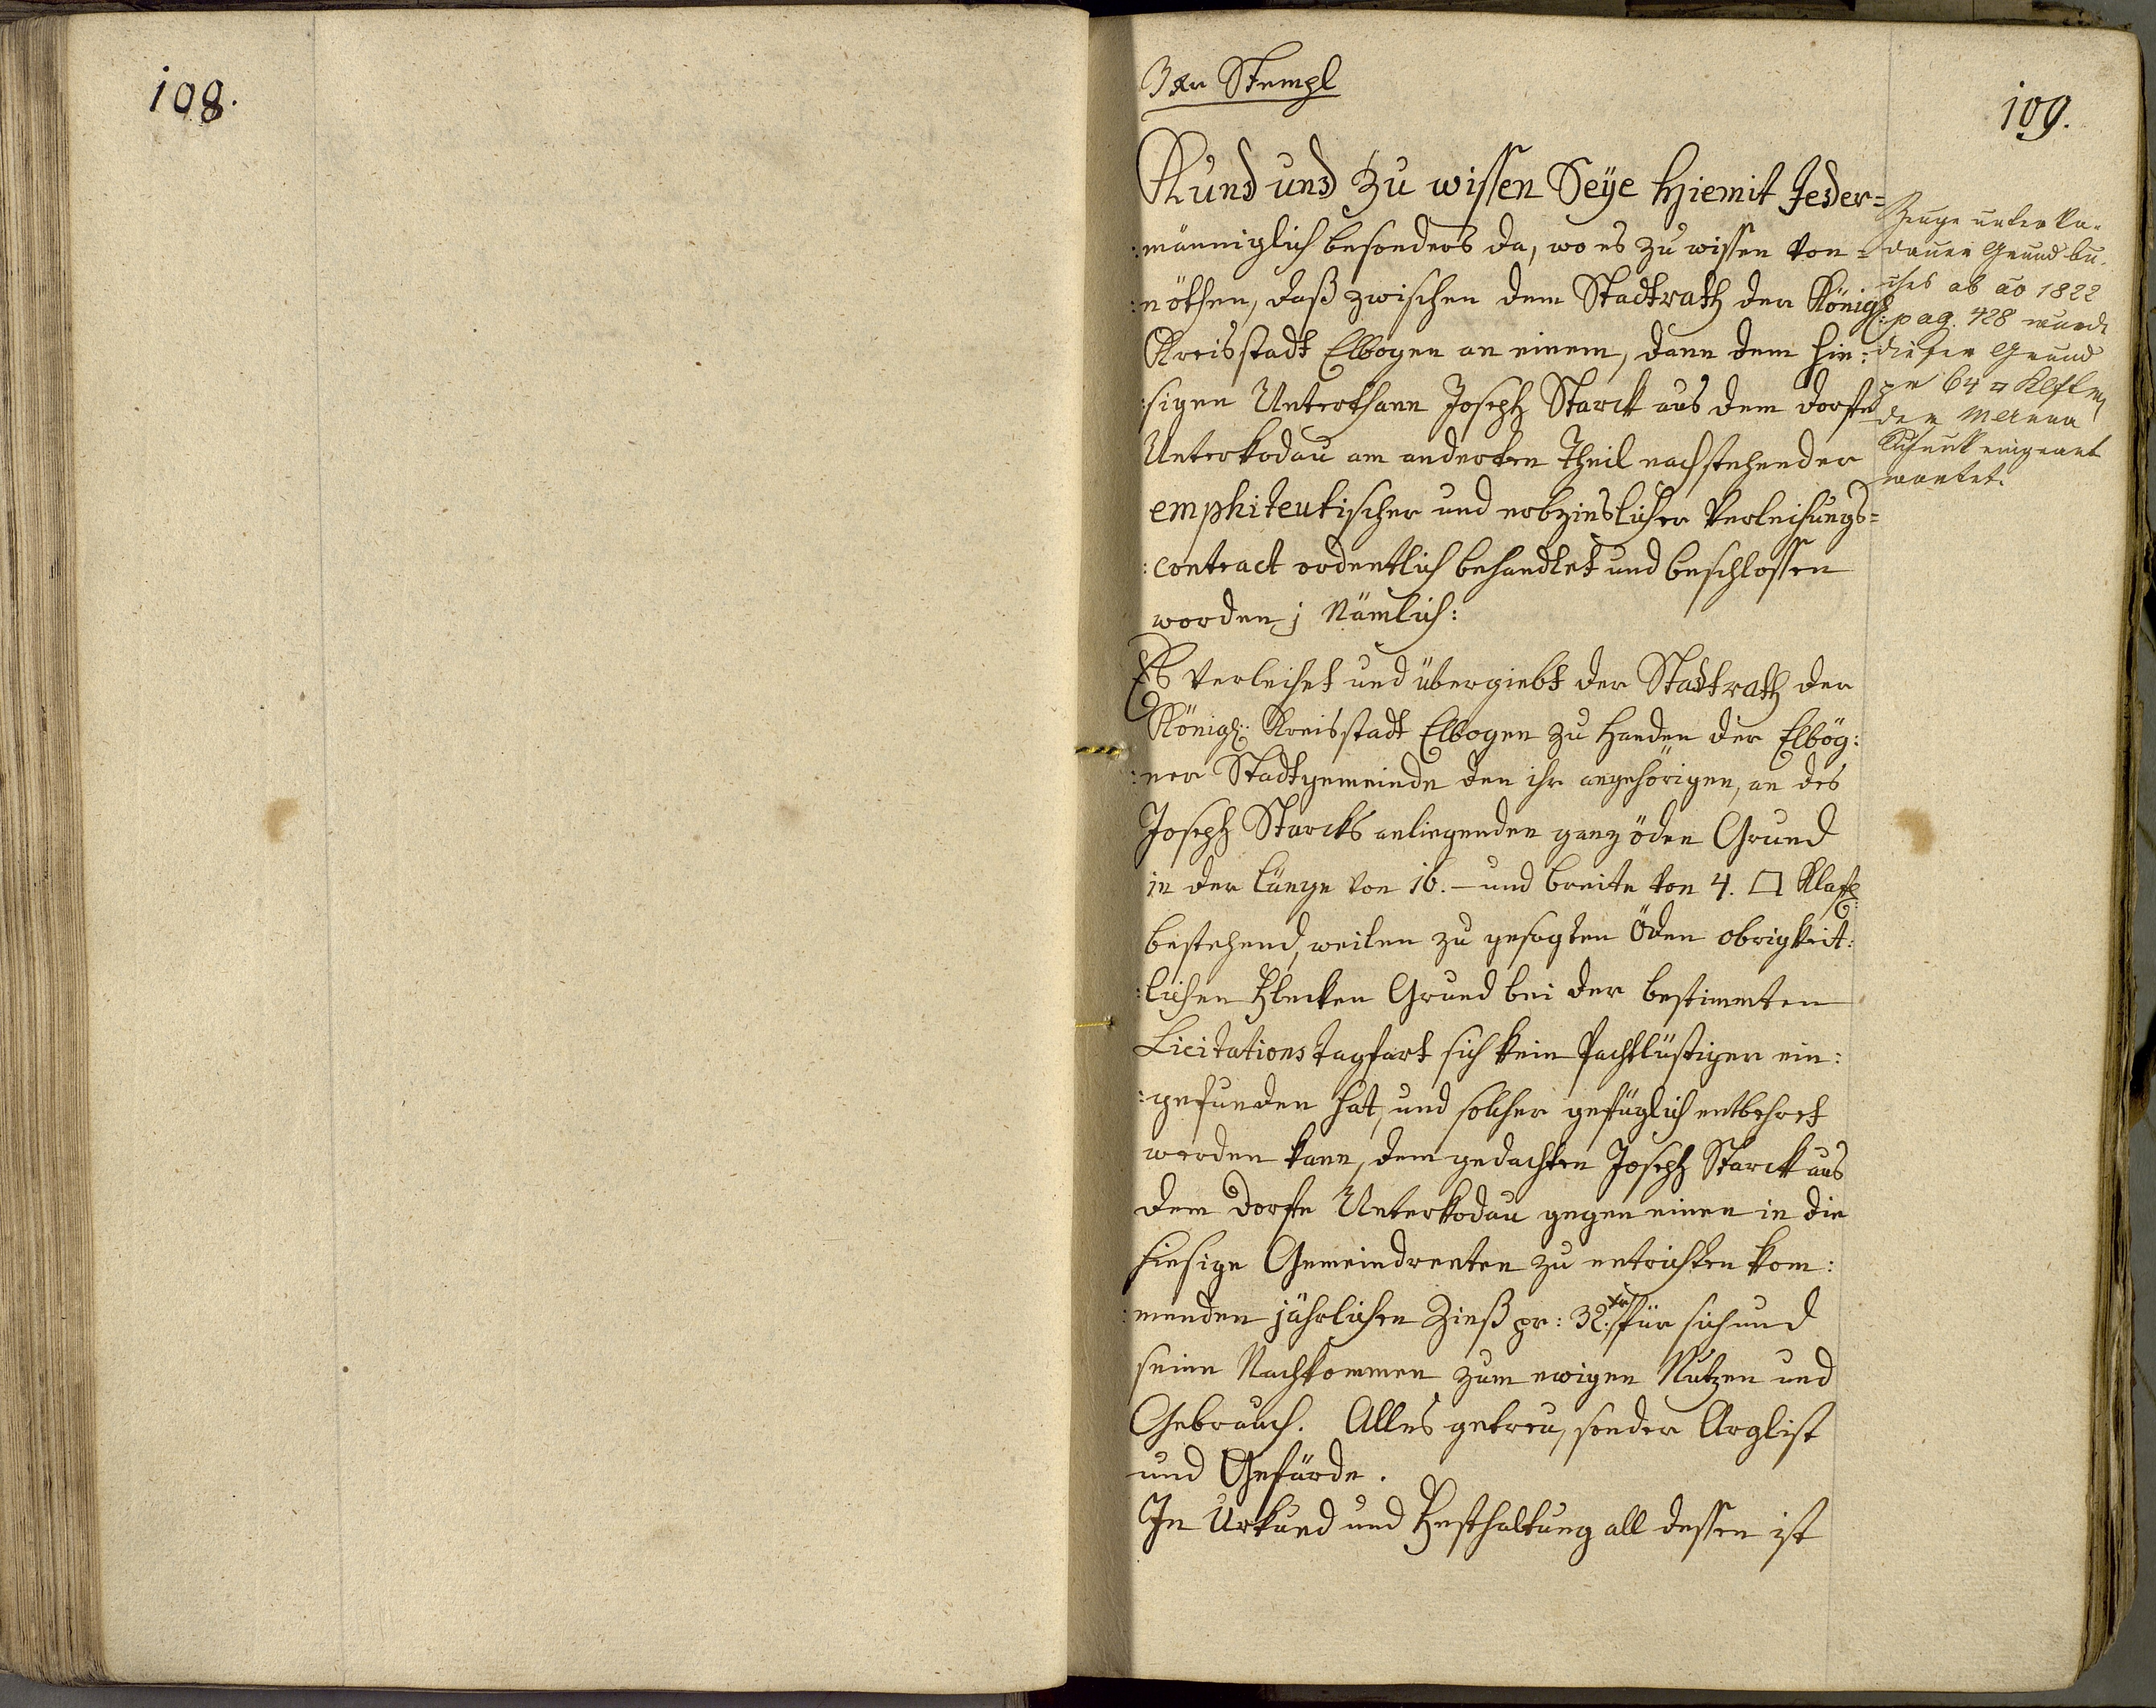 108.
3 xr Stempl
109.
Kund und zu wissen Seÿe hiemit Jeder=
:männiglich besonders da, wo es zu wissen von=
:nöthen, daß zwischen dem Stadtrath der Königl:
Kreisstadt Elbogen an einem, dann dem hie:
:sigen Unterthann Joseph Starck aus dem Dorfe
Unterkodau am anderten Theil nachstehender
emphiteutischer und erbzinslicher Verleihungs=
:contract ordentlich behandlet und beschlossen
worden; Nämlich:
Es verleihet und übergiebt der Stadtrath der
Königl: Kreisstadt Elbogen zu Handen der Elbög:
:ner Stadtgemeinde den ihr angehörigen, an des
Joseph Starcks anliegenden ganz öden Grund
in der Länge von 16. – und breite von 4. □ Klaft:
bestehend, weilen zu gesagten Öden obrigkeit:
:lichen Flecken Grund bei der bestimmten
Licitations tagfart sich kein Pachtlüstiger ein:
:gefunden hat, und solcher gefüglich entbehret
werden kann, dem gedachten Joseph Starck aus
dem Dorfe Unterkodau gegen einen in die
hiesige Gemeindrenten zu entrichten kom:
:menden jährlichen Zinß pr: 32. xr für sich und
seine Nachkommen zum ewigen Nutzen und
Gebrauch. Alles getreu, sonder Arglist
und Gefärde.
In Urkund und Festhaltung all dessen ist
Zeuge unterko-
dauer Grundbu-
ches ab ao 1822
pag. 428 wurde
dieser Grund
pr 64 □ Klftr
dem
eingeant
wortet.